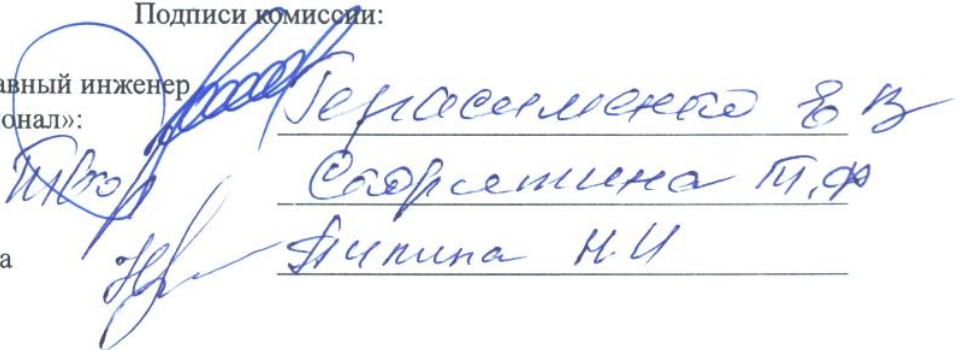 Подписи комиссии:
авный инженер
онал»:
Герасименко Е В
Т.Ф
а
Пипина Н.И